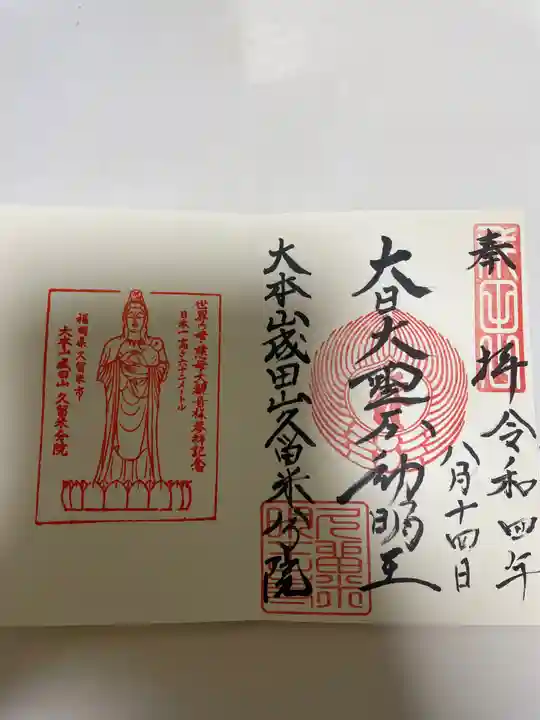 奉拝
令和四年
八月十四日
大日大聖不動明王
大本山成田山久留米分院
世界の平和慈母大観音様参拝記念
日本一高さ六十二メートル
福岡県久留米市
大本山成田山久留米分院